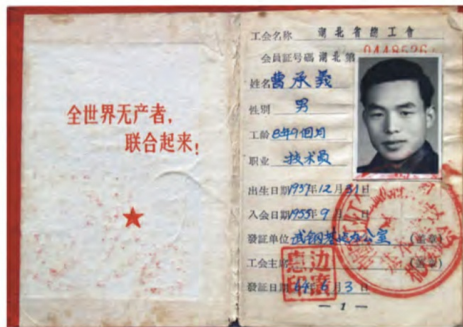 全世界无产者，
联合起来！
工会名称 湖北省总工會
会員証号碼 湖北 第 0448626
姓名 曹承義
性别 男
工龄 8年9個月
职业 技术員
出生日期 1937年12月31日
入会日期 1955年9月
發証单位 武钢基地办公室
工会主席
發証日期 64年6月3日
— 1 —